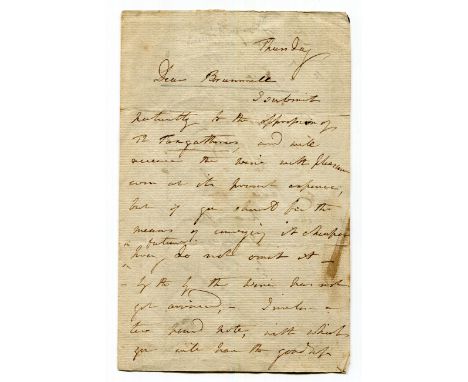 Thursday
Dear Brummell
I submit
patiently to the oppression of
The and will
receive the wine with pleasure
even at its present expence,
but if you should find the
means of conveying it cheaper
in future
do not omit it —
by the by the wine has not
yet arrived, — I enclose a
two pound note, with which
you will have the goodness